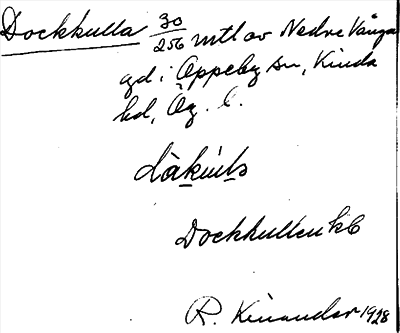 Dockkulla 30/256 mtl av Nedre Vånga
gd i Oppeby sn, Kinda
hd, Ög. l.
Dockkullen kb
R. Kinander 1928